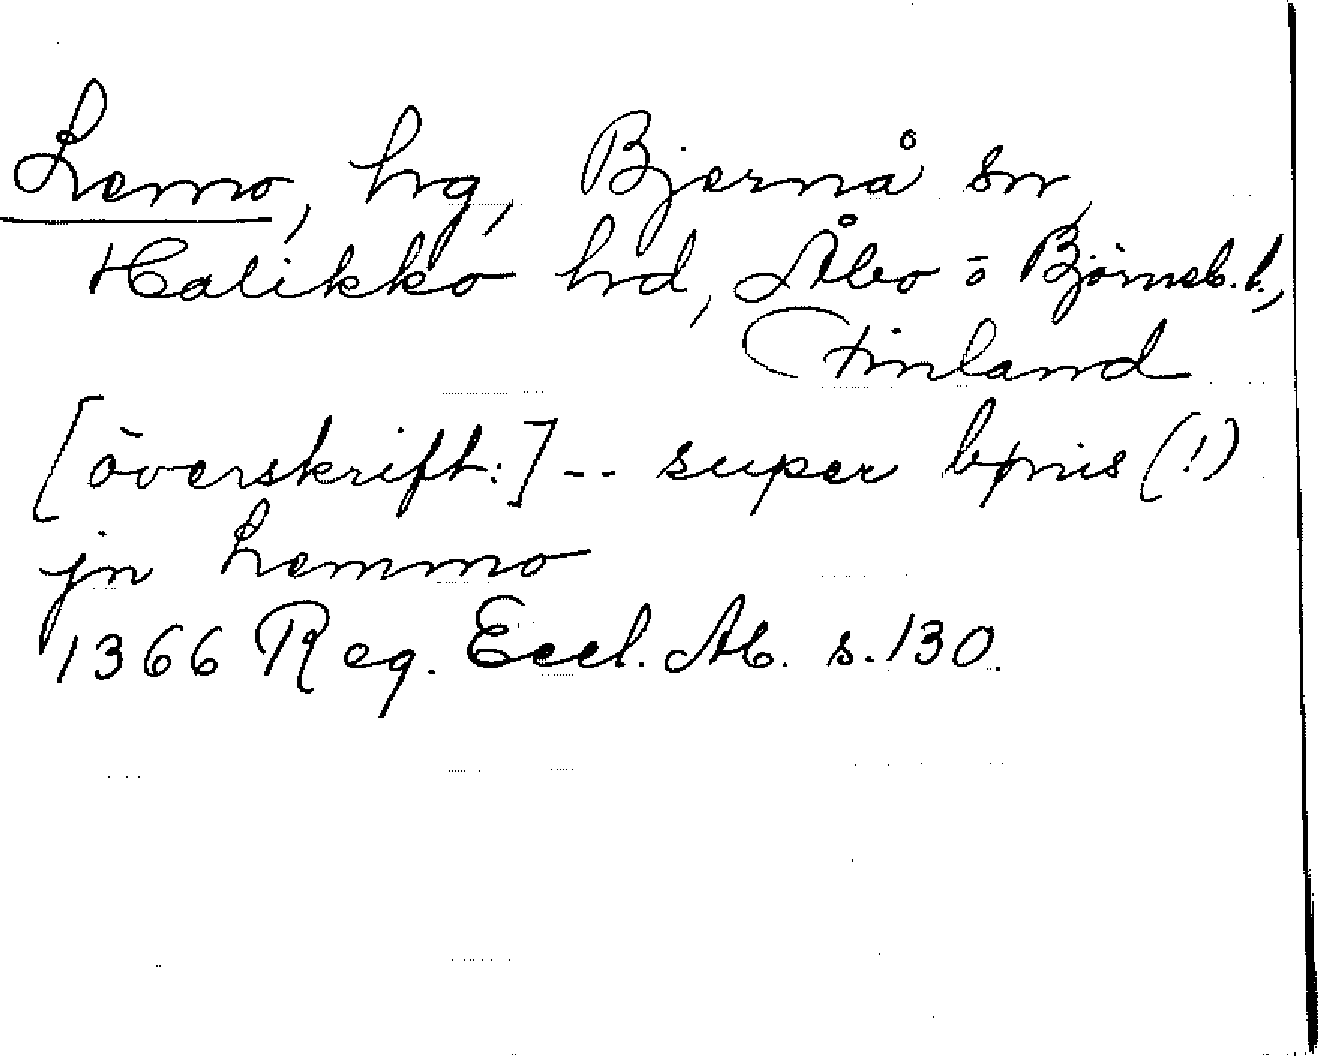 Lemo, hg, Bjernå sn,
Halikko hd, Åbo o Björneb. l.,
Finland
[överskrift:] -- super bonis (!)
jn Lemmo
1366 Reg. Eccl. Ab. s. 130.